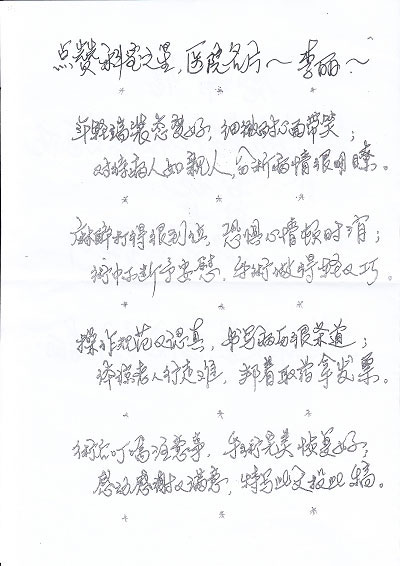 点赞科室之星,医院名片~李丽~
年轻端装态度好,细微耐心面带笑;
对待病人如親人,分析病情很明瞭。
麻醉打得很到位,恐惧心情顿时消;
術中不断予安慰,手術做得轻又巧。
操作规范又认真,书写病历很荣道;
体探老人行走难,帮着取药拿发票。
術后叮嘱注意事,手術完美恢复好;
感动感谢又满意,特写此文投此稿。